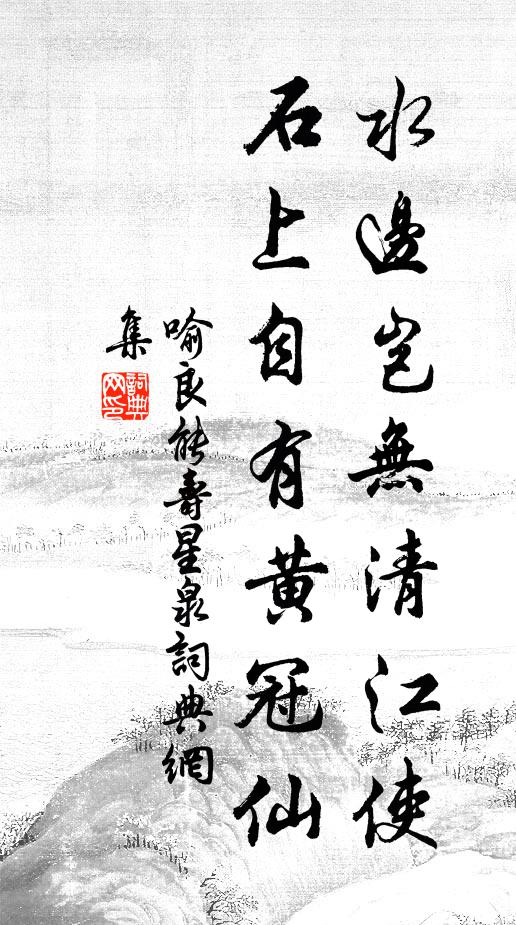 水邊豈無清江使
石上自有黃冠仙
喻良能壽星泉詞典網
集
詞典
网印